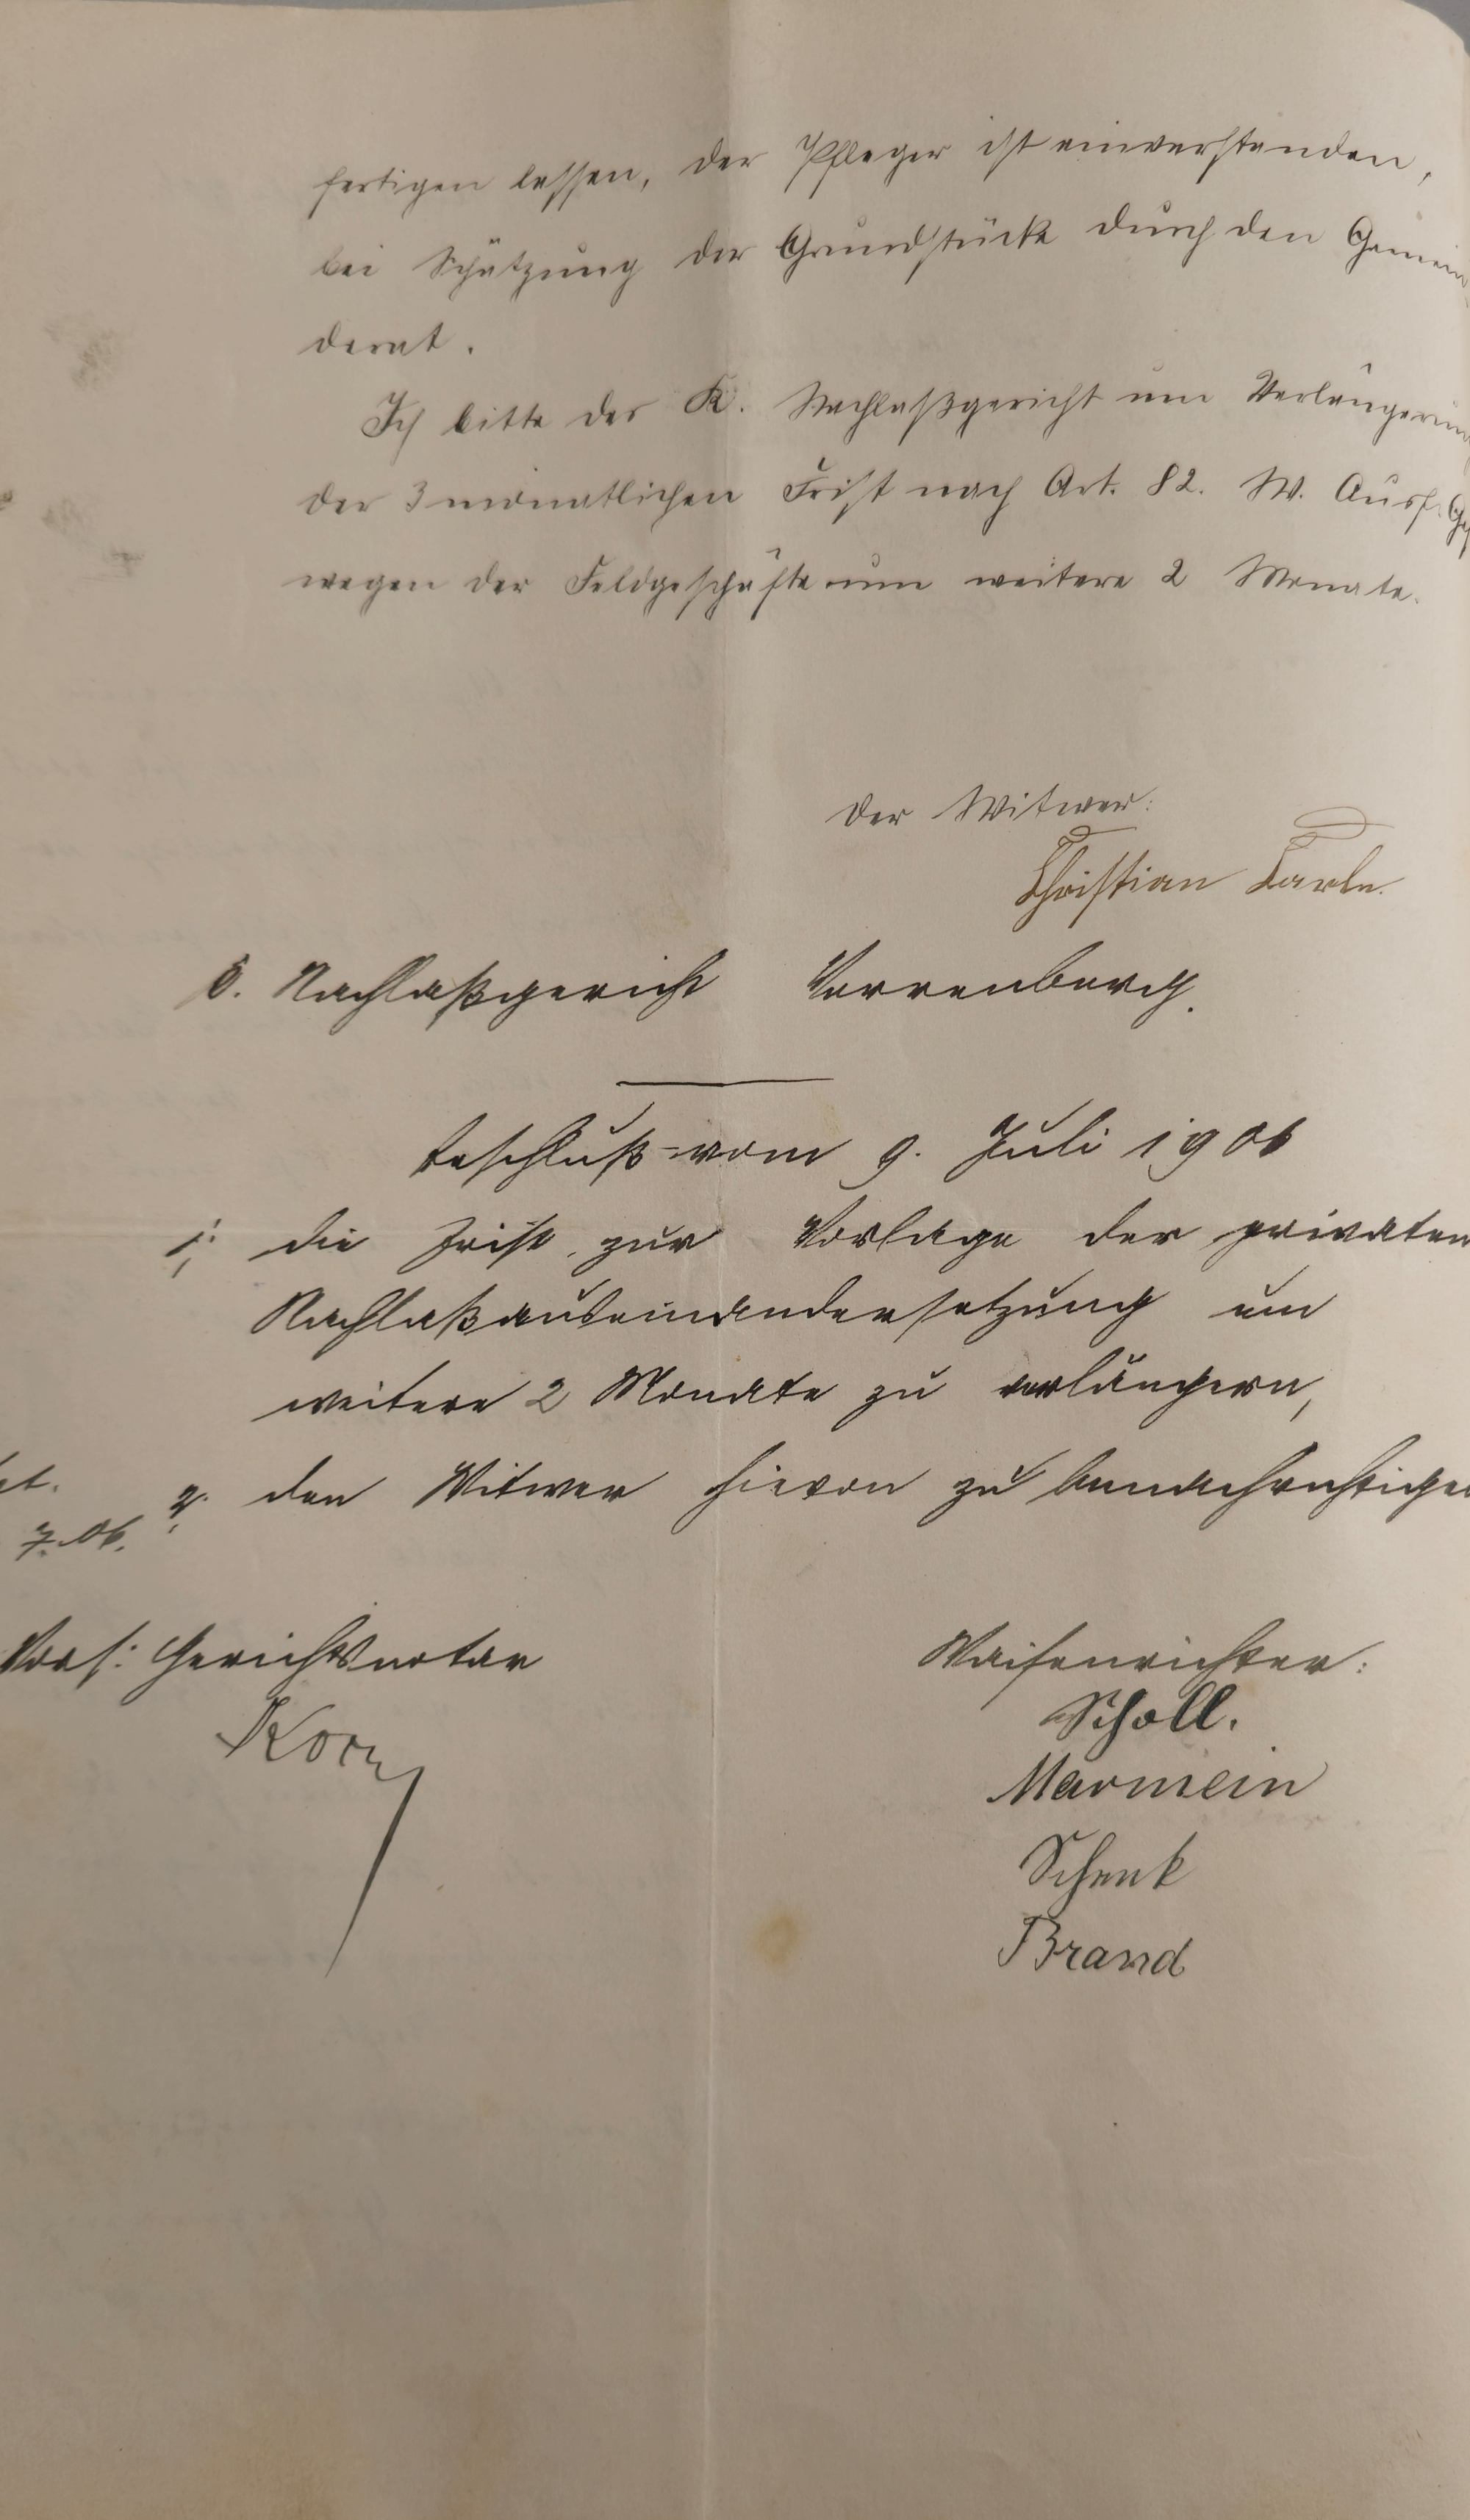 fertigen lassen, der Pfleger ist einverstanden,
bei Schätzung der Grundstücke durch den Gemein
derat.
Ich bitte das K. Nachlaßgericht um Verlängerung
der 3 monatlichen Frist nach Art. 82. W. Ausf. Ges
wegen der Feldgeschäfte um weitere 2 Monate.
Der Witwer:
Christian Karle.
K. Nachlaßgericht Verrenberg.
Beschluß vom 9. Juli 1906
1. die Frist zur Vorlage der privaten
Nachlaßauseinandersetzung um
weitere 2 Monate zu verlängern,
2. den Witwer hievon zu benachrichtigen
7.06.
Vors: Gerichtsnotar
Waisenrichter:
Scholl.
Marmein
Schenk
Brand